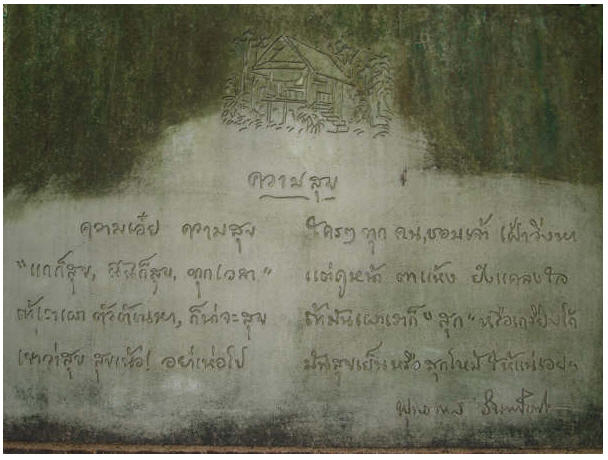 ความสุข
ความเอ๋ย ความสุข ใครๆ ทุก คน, ชอบเจ้า เฝ้าวิ่งหา
"แกก็สุข, ฉันก็สุข, ทุกเวลา" แต่ดูหน้า ตาแห้ง ยังแคลงใจ
ถ้าเราเผา ตัวตัณหา, ก็น่าจะสุข ถ้ามันเผาเราก็ "สุก" หรือเกรียมได้
เขาว่าสุข สุขเน้อ! อย่าเห่อไป มันสุขเย็น หรือสุกไหม้ ให้แน่เอยฯ
พุทธทาส อินทปัญโญ